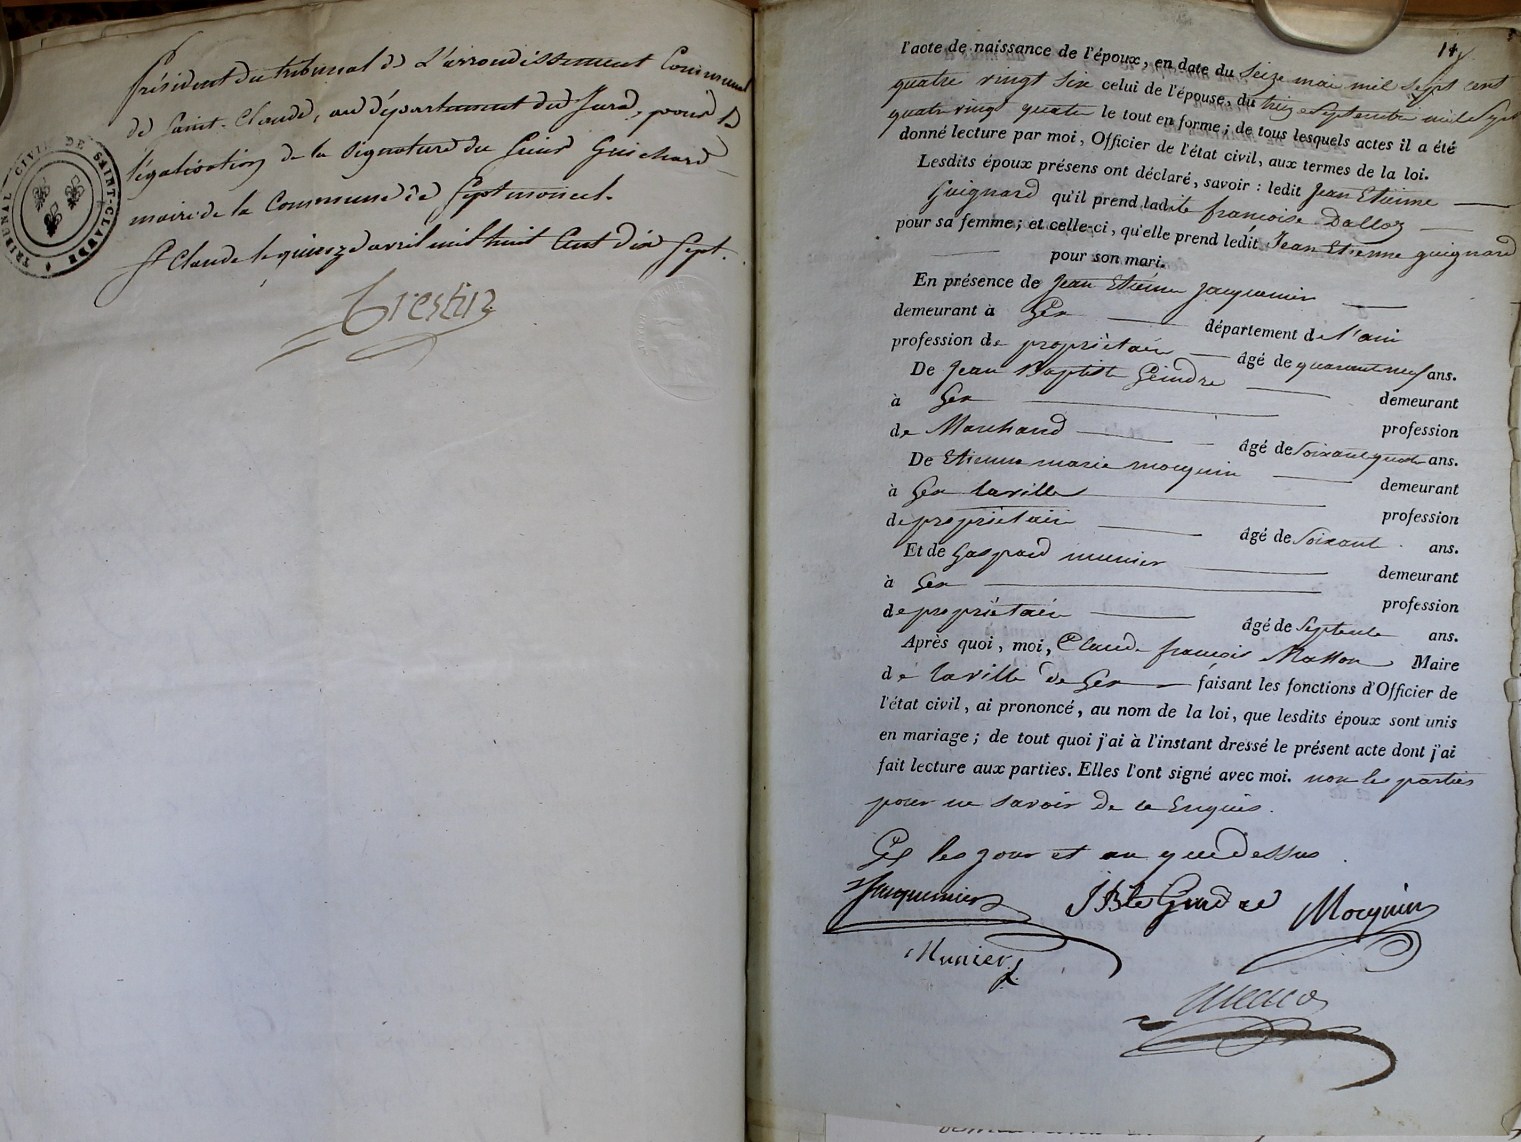 Président du tribunal de L'arrondissement Communal
de Saint-Claude, au département du Jura, pour la
légalisation de la signature du Sieur Guichard
maire de la Commune de Septmoncel.
St Claude le quinze avril mil huit Cent dix Sept.
TRIBUNAL CIVIL DE SAINT-CLAUDE
l'acte de naissance de l'époux, en date du Seize mai mil Sept cent
quatre vingt Six celui de l'épouse, du treize Septembre mil Sept
quatre vingt quatre le tout en forme ; de tous lesquels actes il a été
donné lecture par moi, Officier de l'état civil, aux termes de la loi.
Lesdits époux présens ont déclaré, savoir : ledit Jean Etienne
Guignard qu'il prend ladite françoise Dalloz
pour sa femme ; et celle-ci, qu'elle prend ledit Jean Etienne guignard
pour son mari.
En présence de Jean Etienne Jacquemier
demeurant à Gex département de l'ain
profession de propriétaire âgé de quarante neuf ans.
De Jean Baptiste Geindre demeurant
à Gex profession
de Marchand âgé de Soixante quatre ans.
De Etienne marie mocquin demeurant
à Gex la ville profession
de propriétaire âgé de Soixante ans.
Et de Gaspard munier demeurant
à Gex profession
de propriétaire âgé de Septente ans.
Après quoi, moi, Claude françois Maire
de la ville de Gex faisant les fonctions d'Officier de
l'état civil, ai prononcé, au nom de la loi, que lesdits époux sont unis
en mariage ; de tout quoi j'ai à l'instant dressé le présent acte dont j'ai
fait lecture aux parties. Elles l'ont signé avec moi. non les parties
pour ne savoir de ce Enquis.
les jour et an que Dessus.
Jacquemier JBte Geindre Mocquin
Munier